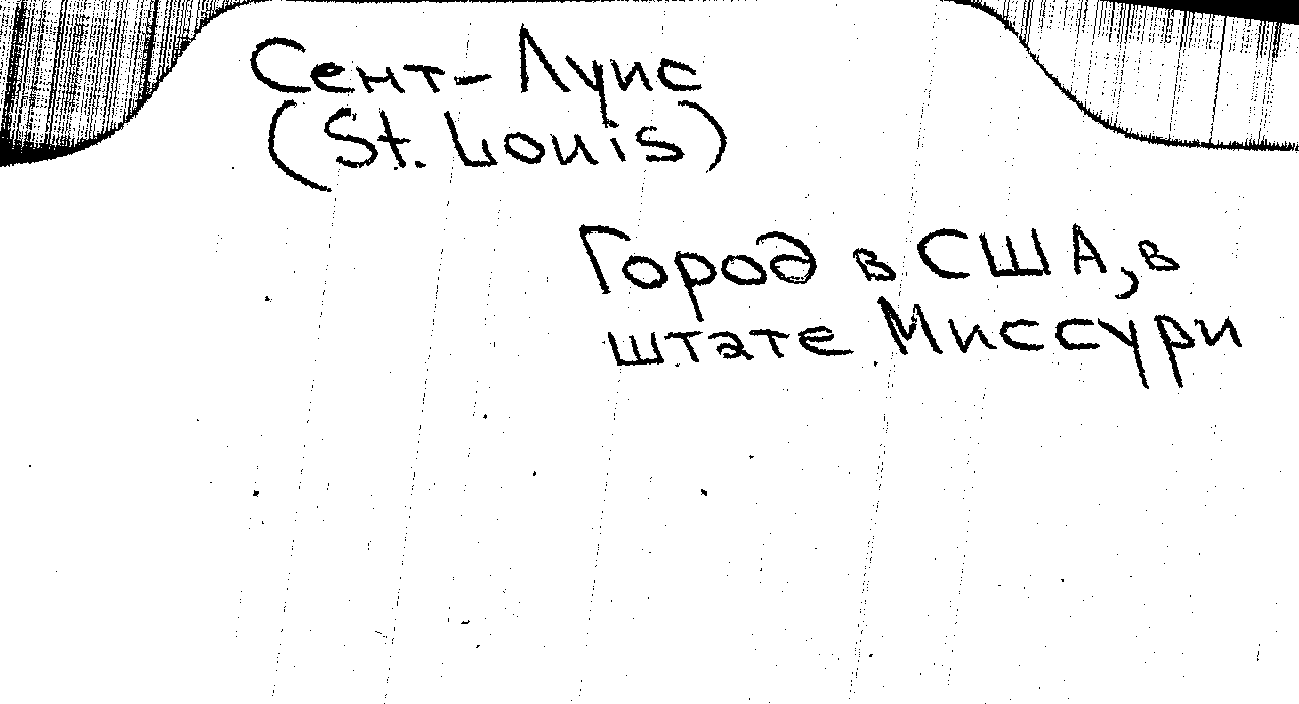 Сент-Луис
(St. Louis)
Город в США, в
штате Миссури